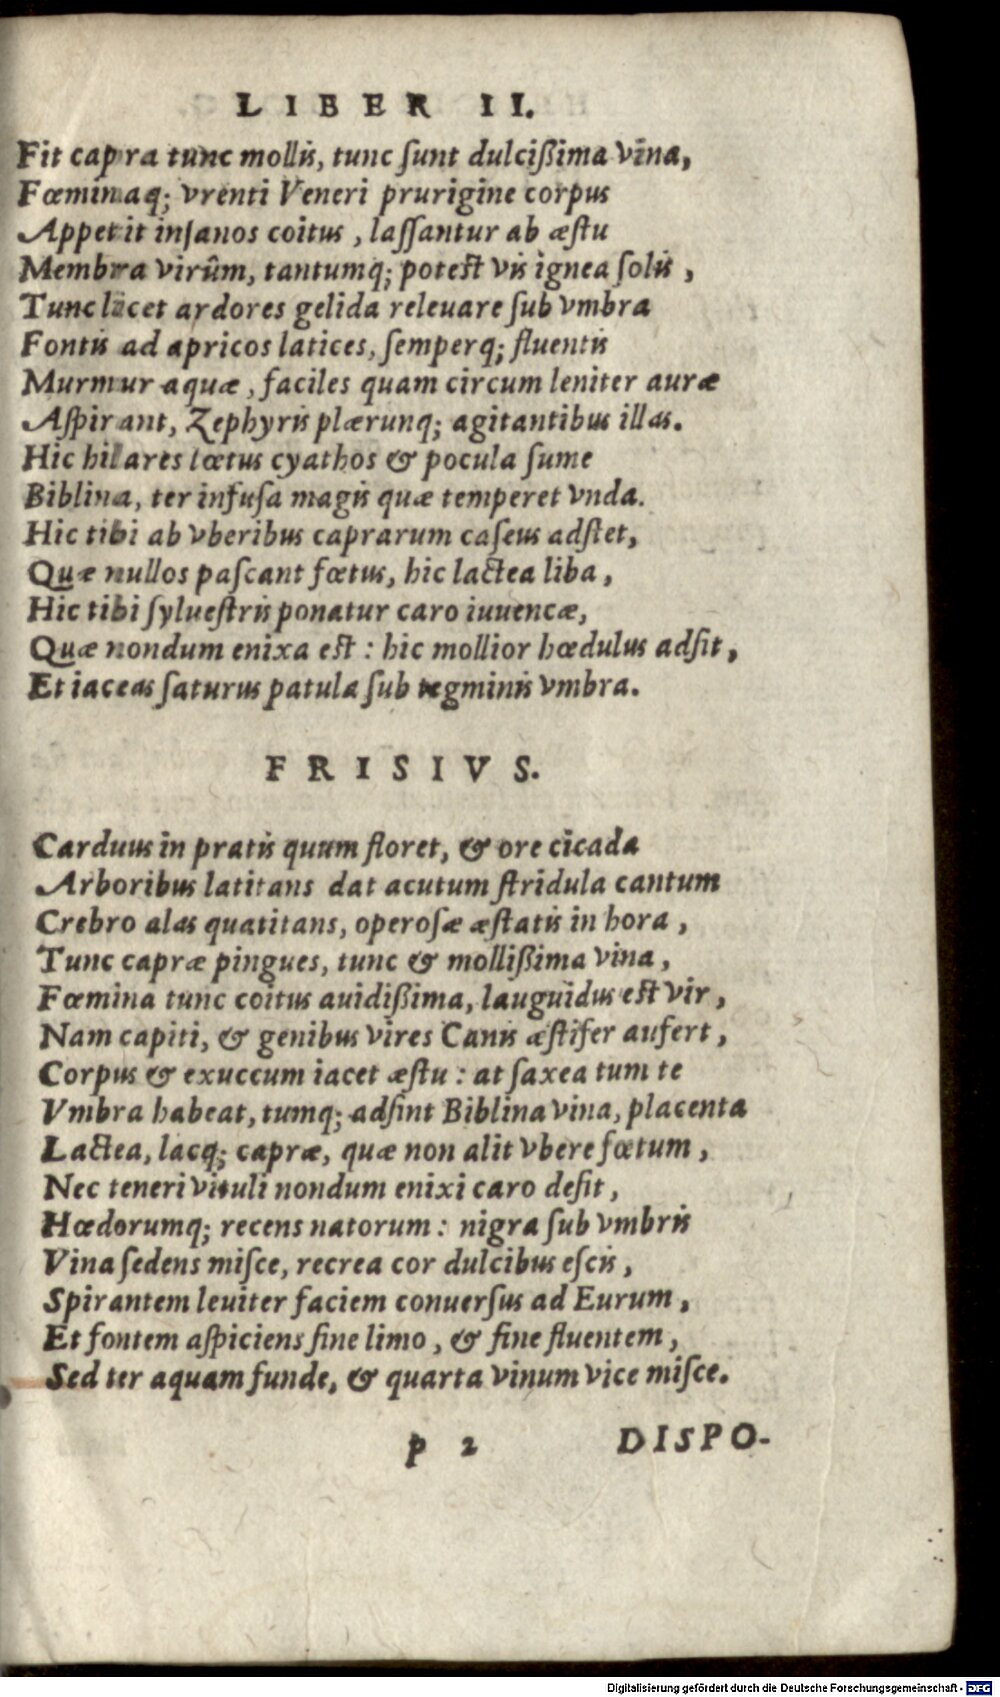 LIBER II.
Fit capra tunc mollis, tunc ſunt dulcißima vina,
Fœminaq; vrenti Veneri prurigine corpus
Appetit inſanos coitus, laſſantur ab æſtu
Membra virûm, tantumq; poteſt vis ignea ſolis,
Tunc licet ardores gelida releuare ſub vmbra
Fontis ad apricos latices, ſemperq; fluentis
Murmur aquæ, faciles quam circum leniter auræ
Aſpirant, Zephyris plærunq; agitantibus illas.
Hic hilares lœtus cyathos & pocula ſume
Biblina, ter infuſa magis quæ temperet vnda.
Hic tibi ab vberibus caprarum caſeus adſtet,
Quæ nullos paſcant fœtus, hic lactea liba,
Hic tibi ſylueſtris ponatur caro iuuencæ,
Quæ nondum enixa eſt: hic mollior hœdulus adſit,
Et iaceas ſaturus patula ſub tegminis vmbra.
FRISIVS.
Carduus in pratis quum floret, & ore cicada
Arboribus latitans dat acutum ſtridula cantum
Crebro alas quatitans, operoſæ æſtatis in hora,
Tunc capræ pingues, tunc & mollißima vina,
Fœmina tunc coitus auidißima, lauguidus eſt vir,
Nam capiti, & genibus vires Canis æſtifer aufert,
Corpus & exuccum iacet æſtu: at ſaxea tum te
Vmbra habeat, tumq; adſint Biblina vina, placenta
Lactea, lacq; capræ, quæ non alit vbere fœtum,
Nec teneri vituli nondum enixi caro deſit,
Hœdorumq; recens natorum: nigra ſub vmbris
Vina ſedens miſce, recrea cor dulcibus eſcis,
Spirantem leuiter faciem conuerſus ad Eurum,
Et fontem aſpiciens ſine limo, & ſine fluentem,
Sed ter aquam funde, & quarta vinum vice miſce.
p 2 DISPO-
Digitalisierung gefördert durch die Deutsche Forschungsgemeinschaft - DFG